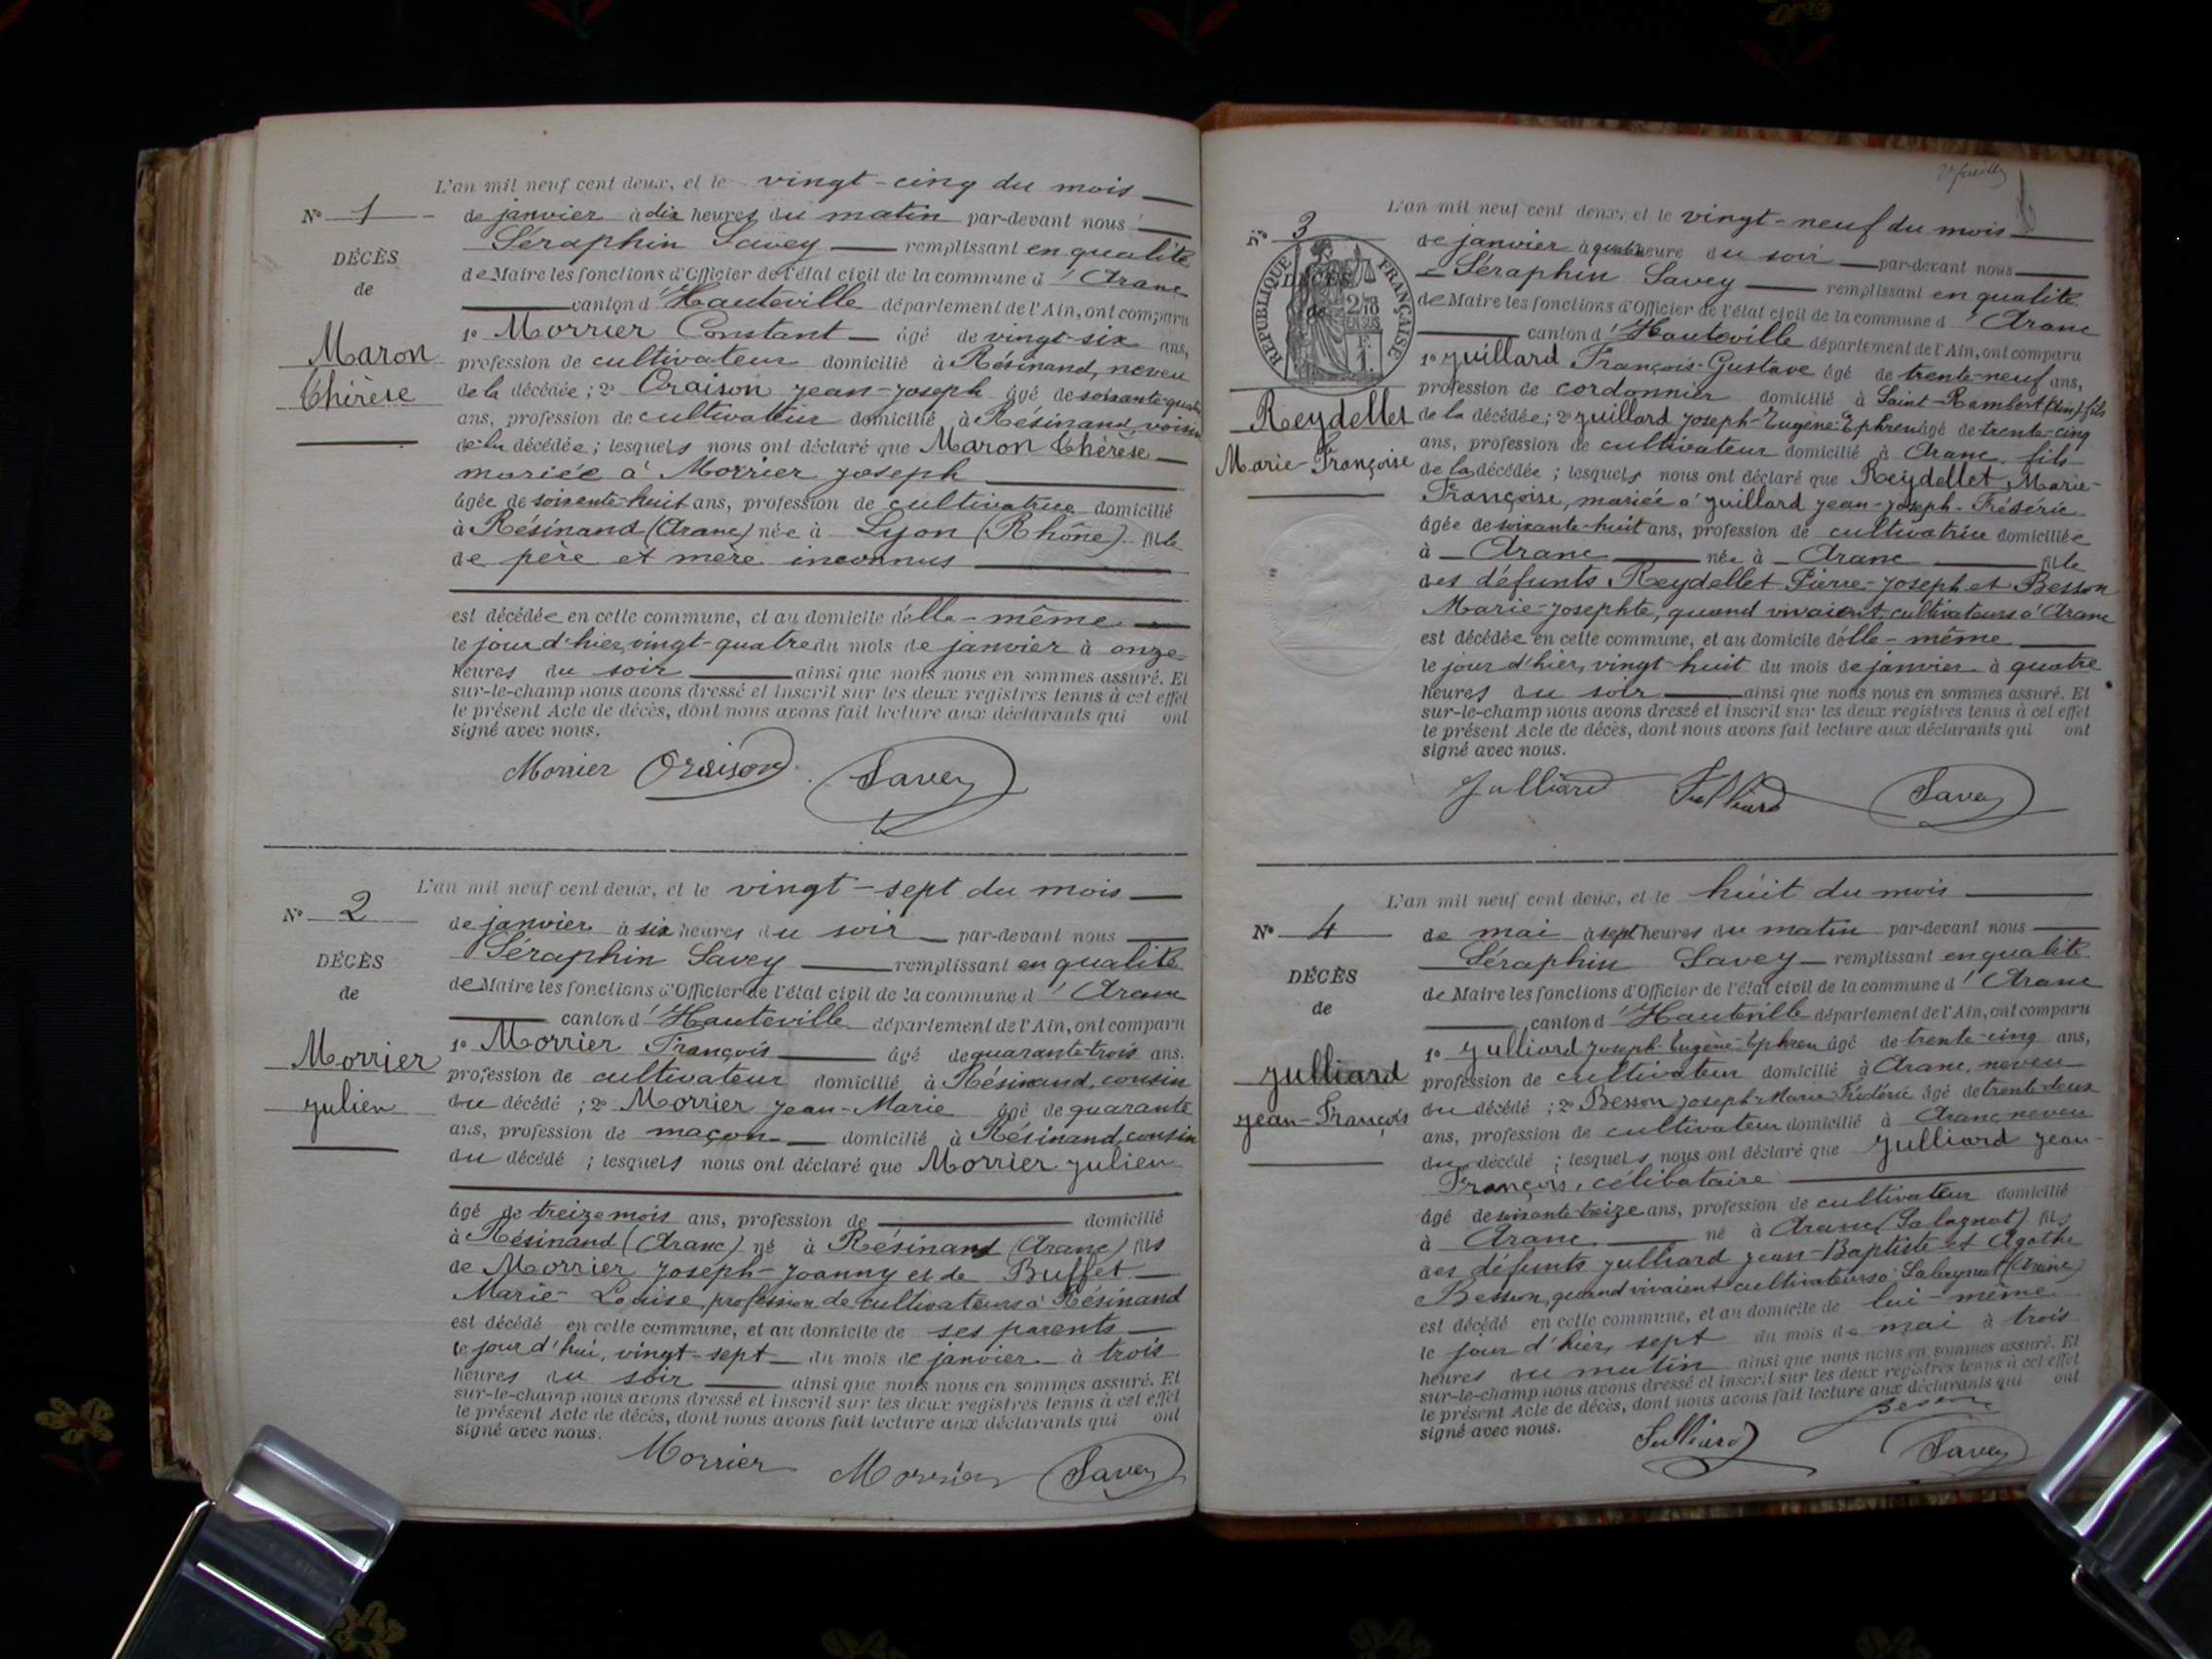 L'an mil neuf cent deux, et le vingt-cinq du mois
N° 1
de janvier à dix heures du matin par-devant nous
Séraphin Savey remplissant en qualité
DÉCÈS
de Maire les fonctions d'Officier de l'état civil de la commune d'Aranc
de
canton d'Hauteville département de l'Ain, ont comparu
1° Morrier Constant âgé de vingt-six ans,
Maron
profession de cultivateur domicilié à Résinand, neveu
Thérèse
de la décédée ; 2° Oraison Jean-Joseph âgé de soixante-quatre
ans, profession de cultivateur domicilié à Résinand, voisin
de la décédée ; lesquels nous ont déclaré que Maron Thérèse
mariée à Morrier Joseph
âgée de soixante-huit ans, profession de cultivatrice domicilié
à Résinand (Aranc) née à Lyon (Rhône) fille
de père et mère inconnus
est décédée en cette commune, et au domicile d'elle-même
le jour d'hier, vingt-quatre du mois de janvier à onze
heures du soir ainsi que nous nous en sommes assuré. Et
sur-le-champ nous avons dressé et inscrit sur les deux registres tenus à cet effet
le présent Acte de décès, dont nous avons fait lecture aux déclarants qui ont
signé avec nous.
Morrier Oraison Savey
L'an mil neuf cent deux, et le vingt-sept du mois
N° 2
de janvier à six heures du soir par-devant nous
DÉCÈS
Séraphin Savey remplissant en qualité
de
de Maire les fonctions d'Officier de l'état civil de la commune d'Aranc
canton d'Hauteville département de l'Ain, ont comparu
Morrier
1° Morrier François âgé de quarante-trois ans.
profession de cultivateur domicilié à Résinand, cousin
Julien
du décédé ; 2° Morrier Jean-Marie âgé de quarante
ans, profession de maçon domicilié à Résinand, cousin
du décédé ; lesquels nous ont déclaré que Morrier Julien
âgé de treize mois ans, profession de domicilié
à Résinand (Aranc) né à Résinand (Aranc) fils
de Morrier Joseph-Joanny et de Buffet
Marie-Louise, profession de cultivateurs à Résinand
est décédé en cette commune, et au domicile de ses parents
le jour d'hui, vingt-sept du mois de janvier à trois
heures du soir ainsi que nous nous en sommes assuré. Et
sur-le-champ nous avons dressé et inscrit sur les deux registres tenus à cet effet
le présent Acte de décès, dont nous avons fait lecture aux déclarants qui ont
signé avec nous.
Morrier Morrier Savey
L'an mil neuf cent deux, et le vingt-neuf du mois
N° 3
de janvier à quatre heure du soir par-devant nous
RÉPUBLIQUE FRANÇAISE
DÉCÈS
Séraphin Savey remplissant en qualité
de
de Maire les fonctions d'Officier de l'état civil de la commune d'Aranc
canton d'Hauteville département de l'Ain, ont comparu
1° Juillard François-Gustave âgé de trente-neuf ans,
profession de cordonnier domicilié à Saint-Rambert (Ain) fils
Reydellet
de la décédée ; 2° Juillard Joseph-Eugène-Ephren âgé de trente-cinq
ans, profession de cultivateur domicilié à Aranc, fils
Marie-Françoise
de la décédée ; lesquels nous ont déclaré que Reydellet Marie-
Françoise, mariée à Juillard Jean-Joseph-Frédéric
âgée de soixante-huit ans, profession de cultivatrice domiciliée
à Aranc née à Aranc fille
des défunts Reydellet Pierre-Joseph et Besson
Marie-Josephte, quand vivaient cultivateurs à Aranc
est décédée en cette commune, et au domicile d'elle-même
le jour d'hier, vingt-huit du mois de janvier à quatre
heures du soir ainsi que nous nous en sommes assuré. Et
sur-le-champ nous avons dressé et inscrit sur les deux registres tenus à cet effet
le présent Acte de décès, dont nous avons fait lecture aux déclarants qui ont
signé avec nous.
Julliard Julliard Savey
L'an mil neuf cent deux, et le huit du mois
N° 4
de mai à sept heures du matin par-devant nous
Séraphin Savey remplissant en qualité
DÉCÈS
de Maire les fonctions d'Officier de l'état civil de la commune d'Aranc
de
canton d'Hauteville département de l'Ain, ont comparu
1° Julliard Joseph-Eugène-Ephren âgé de trente-cinq ans,
Julliard
profession de cultivateur domicilié à Aranc, neveu
Jean-François
du décédé ; 2° Besson Joseph-Marie-Frédéric âgé de trente-deux
ans, profession de cultivateur domicilié à Aranc, neveu
du décédé ; lesquels nous ont déclaré que Julliard Jean-
François, célibataire
âgé de soixante-treize ans, profession de cultivateur domicilié
à Aranc né à Aranc (Salagnat) fils
des défunts Julliard Jean-Baptiste et Agathe
Besson, quand vivaient cultivateurs à Salagnat (Aranc)
est décédé en cette commune, et au domicile de lui-même
le jour d'hier, sept du mois de mai à trois
heures du matin ainsi que nous nous en sommes assuré. Et
sur-le-champ nous avons dressé et inscrit sur les deux registres tenus à cet effet
le présent Acte de décès, dont nous avons fait lecture aux déclarants qui ont
signé avec nous.
Julliard Besson Savey